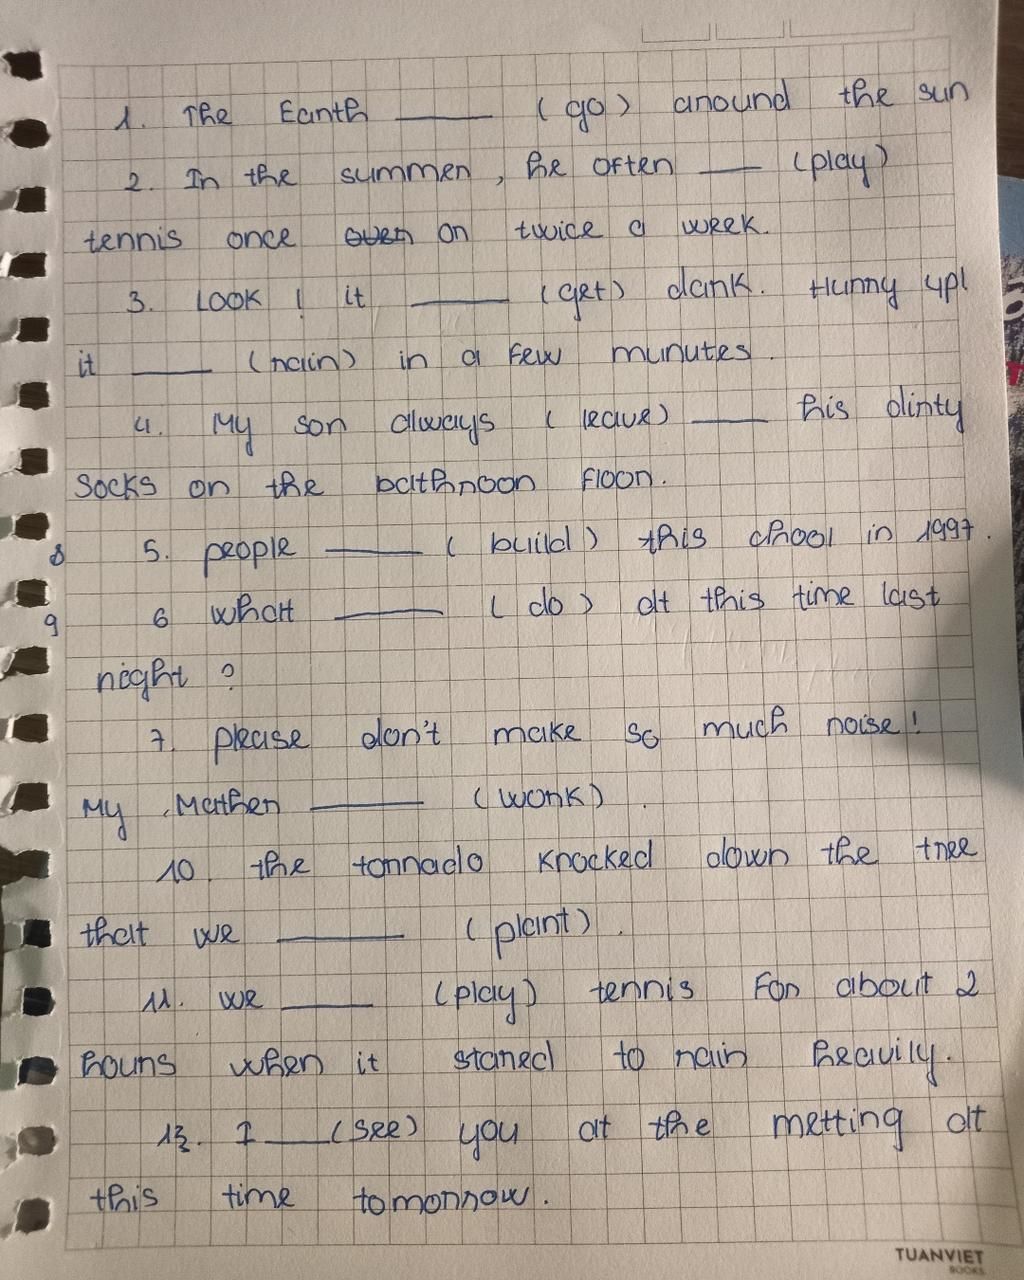 1. The Earth ______ (go) around the sun
2. In the summer, he often ___ (play)
tennis once or twice a week.
3. Look! it ______ (get) dark. Hurry up!
it ____ (rain) in a few munutes.
4. My son always (leave) ____ his dirty
socks on the bathroon floor.
8 5. people ______ (build) this chool in 1997.
9 6 what ______ (do) at this time last
night?
7. please don't make so much noise!
My Mother ______ (work).
10. the tornado knocked down the tree
that we ______ (plant).
11. we ______ (play) tennis For about 2
hours when it stared to rain heavily.
I ____ (see) you at the metting at
this time tomorrow.
TUANVIET
BOOKS